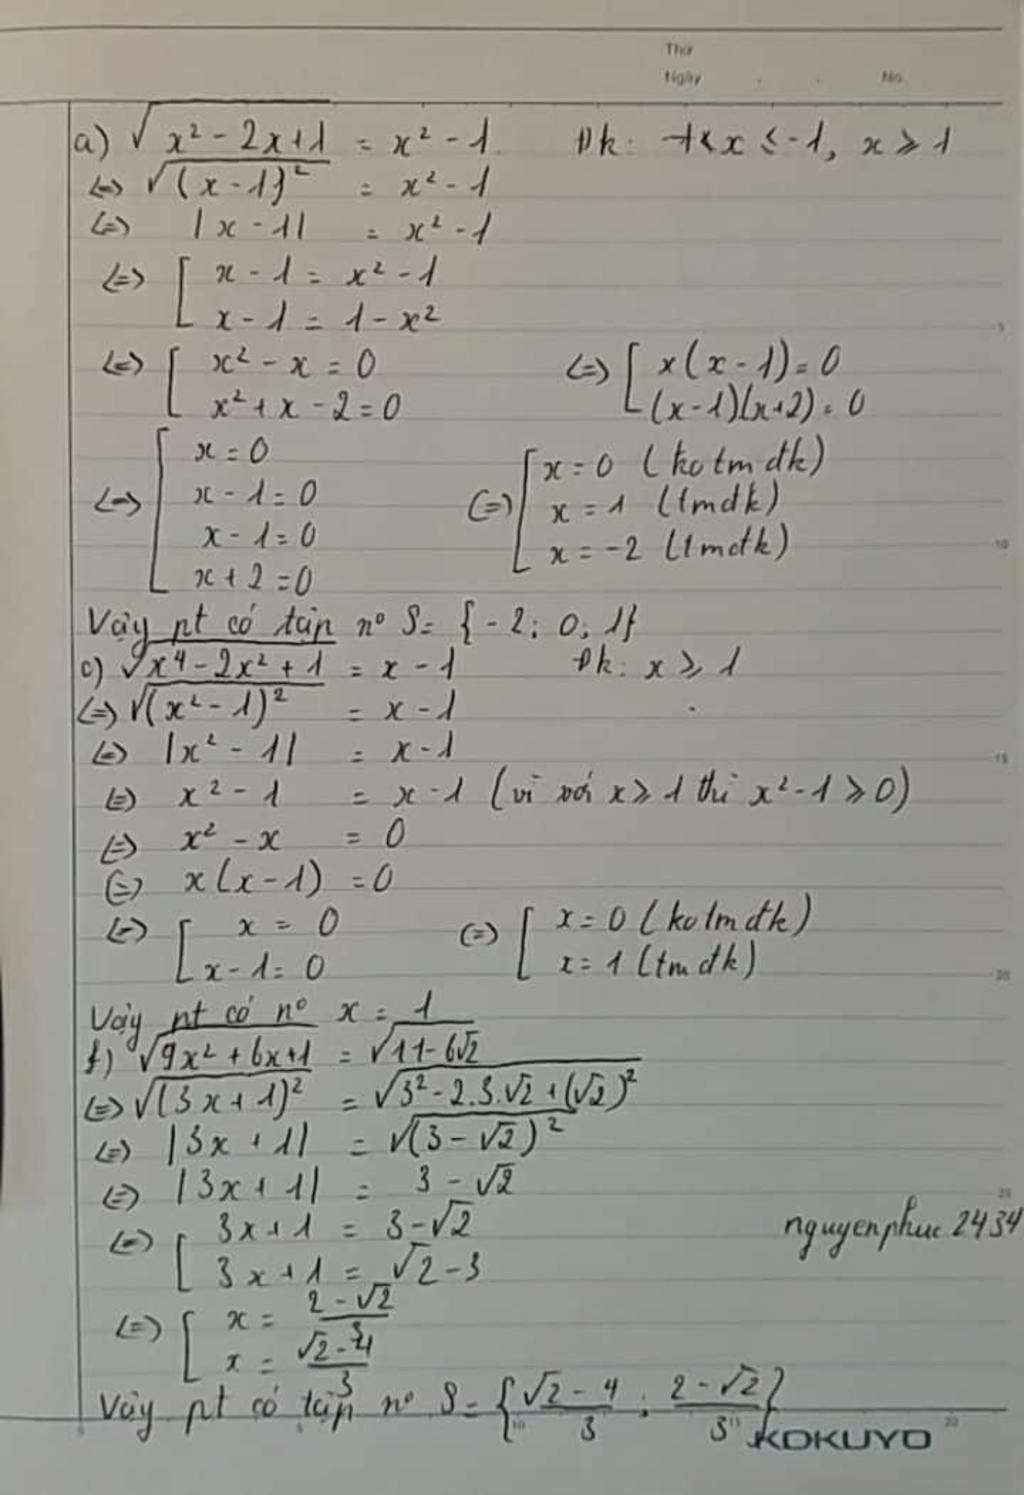 Thứ
Ngày . . No.
a) √(x² - 2x+1) = x² - 1 Đk: x ≤ -1, x ≥ 1
<=> √((x-1)²) = x² - 1
<=> |x-1| = x² - 1
<=> [ x - 1 = x² - 1
x - 1 = 1 - x²
<=> [ x² - x = 0 <=> [ x(x-1) = 0
x² + x - 2 = 0 (x-1)(x+2) = 0
<=> [ x = 0 <=> [ x = 0 (ko tm đk)
x - 1 = 0 x = 1 (tmđk)
x - 1 = 0 x = -2 (tmđk)
x + 2 = 0
Vậy pt có tập n° S = {-2; 0; 1}
c) √(x⁴ - 2x² + 1) = x - 1 Đk: x ≥ 1
<=> √((x² - 1)²) = x - 1
<=> |x² - 1| = x - 1
<=> x² - 1 = x - 1 (vì với x ≥ 1 thì x² - 1 ≥ 0)
<=> x² - x = 0
<=> x(x-1) = 0
<=> [ x = 0 <=> [ x = 0 (ko tm đk)
x - 1 = 0 x = 1 (tm đk)
Vậy pt có n° x = 1
f) √(9x² + 6x+1) = √(11 - 6√2)
<=> √((3x+1)²) = √(3² - 2.3.√2 + (√2)²)
<=> |3x + 1| = √((3 - √2)²)
<=> |3x + 1| = 3 - √2
<=> [ 3x + 1 = 3 - √2
3x + 1 = √2 - 3
nguyenphuc 2434
<=> [ x = (2 - √2)/3
x = (√2 - 4)/3
Vậy pt có tập n° S = {(√2 - 4)/3 ; (2 - √2)/3}
KOKUYO